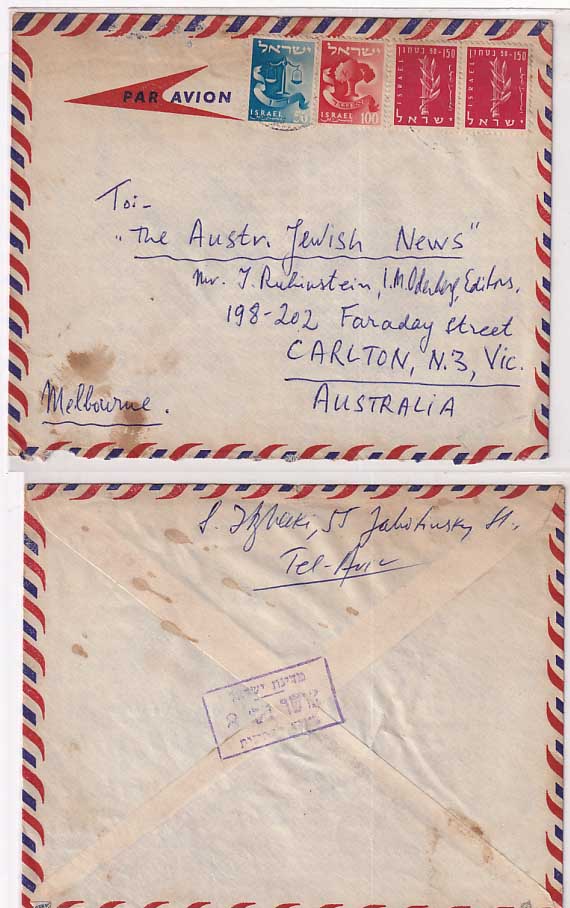 PAR AVION
ישראל ישראל
ISRAEL 50 ISRAEL 100
ISRAEL 150 בטחון ISRAEL 150 בטחון
ישראל ישראל
To:-
"The Austr. Jewish News"
Mr. J. Rubinstein, I.M. Oderberg, Editors,
198-202 Faraday Street
CARLTON, N.3, Vic.
Melbourne. AUSTRALIA
S. Izhaki, 55 Jabotinsky St.,
Tel-Aviv
מדינת ישראל